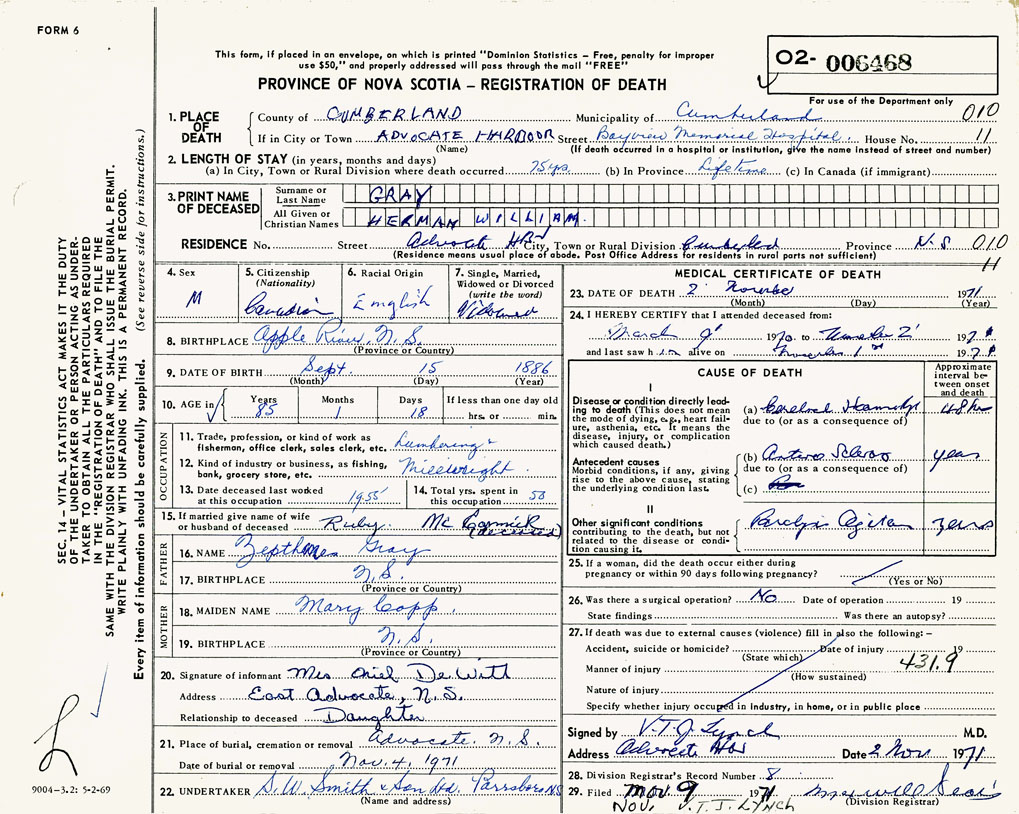 FORM 6
This form, if placed in an envelope, on which is printed "Dominion Statistics – Free, penalty for improper
use $50," and properly addressed will pass through the mail "FREE"
PROVINCE OF NOVA SCOTIA – REGISTRATION OF DEATH
02- 006468
For use of the Department only
1. PLACE OF DEATH
County of CUMBERLAND Municipality of Cumberland 010
If in City or Town ADVOCATE HARBOUR Street Bayview Memorial Hospital. House No. 11
(Name) (If death occurred in a hospital or institution, give the name instead of street and number)
2. LENGTH OF STAY (in years, months and days)
(a) In City, Town or Rural Division where death occurred 75 yrs. (b) In Province Lifetime (c) In Canada (if immigrant)
3. PRINT NAME OF DECEASED
Surname or Last Name GRAY
All Given or Christian Names HERMAN WILLIAM.
RESIDENCE No. Street Advocate Hbr City, Town or Rural Division Cumberland Province N.S. 010
(Residence means usual place of abode. Post Office Address for residents in rural parts not sufficient) 11
4. Sex M
5. Citizenship (Nationality) Canadian
6. Racial Origin English
7. Single, Married, Widowed or Divorced (write the word) Widowed
8. BIRTHPLACE Apple River, N.S.
(Province or Country)
9. DATE OF BIRTH Sept. 15 1886
(Month) (Day) (Year)
10. AGE in Years 85 Months 1 Days 18 If less than one day old hrs. or min.
OCCUPATION
11. Trade, profession, or kind of work as fisherman, office clerk, sales clerk, etc. Lumbering &
12. Kind of industry or business, as fishing, bank, grocery store, etc. Millwright
13. Date deceased last worked at this occupation 1955
14. Total yrs. spent in this occupation 50
15. If married give name of wife or husband of deceased Ruby McCormick (deceased)
FATHER
16. NAME Gray
17. BIRTHPLACE N.S.
(Province or Country)
MOTHER
18. MAIDEN NAME Mary Copp.
19. BIRTHPLACE N.S.
(Province or Country)
20. Signature of informant Mrs De Witt
Address East Advocate, N.S.
Relationship to deceased Daughter
21. Place of burial, cremation or removal Advocate. N.S.
Date of burial or removal Nov. 4, 1971
22. UNDERTAKER S.W. Smith & Son Ltd. Parrsboro NS
(Name and address)
MEDICAL CERTIFICATE OF DEATH
23. DATE OF DEATH 2 1971
(Month) (Day) (Year)
24. I HEREBY CERTIFY that I attended deceased from:
March 1970 to November 2 1971
and last saw him alive on November 1st 1971
CAUSE OF DEATH
Approximate interval between onset and death
I
Disease or condition directly leading to death (This does not mean the mode of dying, e.g., heart failure, asthenia, etc. It means the disease, injury, or complication which caused death.)
(a) Cerebral 48 hr
due to (or as a consequence of)
Antecedent causes
Morbid conditions, if any, giving rise to the above cause, stating the underlying condition last.
(b) Arterio Sclero years
due to (or as a consequence of)
(c)
II
Other significant conditions contributing to the death, but not related to the disease or condition causing it.
Paralysis Agitans years
25. If a woman, did the death occur either during pregnancy or within 90 days following pregnancy?
(Yes or No)
26. Was there a surgical operation? No Date of operation 19
State findings Was there an autopsy?
27. If death was due to external causes (violence) fill in also the following:–
Accident, suicide or homicide? Date of injury 19
(State which) 431.9
Manner of injury
(How sustained)
Nature of injury
Specify whether injury occupied in industry, in home, or in public place
Signed by V.T.J. Lynch M.D.
Address Advocate Hbr Date 2 Nov. 1971
28. Division Registrar's Record Number 8
29. Filed Nov 9 1971
(Division Registrar)
NOV. V.T.J. LYNCH
SEC. 14 – VITAL STATISTICS ACT MAKES IT THE DUTY
OF THE UNDERTAKER OR PERSON ACTING AS UNDER-
TAKER TO OBTAIN ALL THE PARTICULARS REQUIRED
IN THE "REGISTRATION OF DEATH" AND TO FILE THE
SAME WITH THE DIVISION REGISTRAR WHO SHALL ISSUE THE BURIAL PERMIT.
WRITE PLAINLY WITH UNFADING INK. THIS IS A PERMANENT RECORD.
Every item of information should be carefully supplied. (See reverse side for instructions.)
9004-3.2: 5-2-69